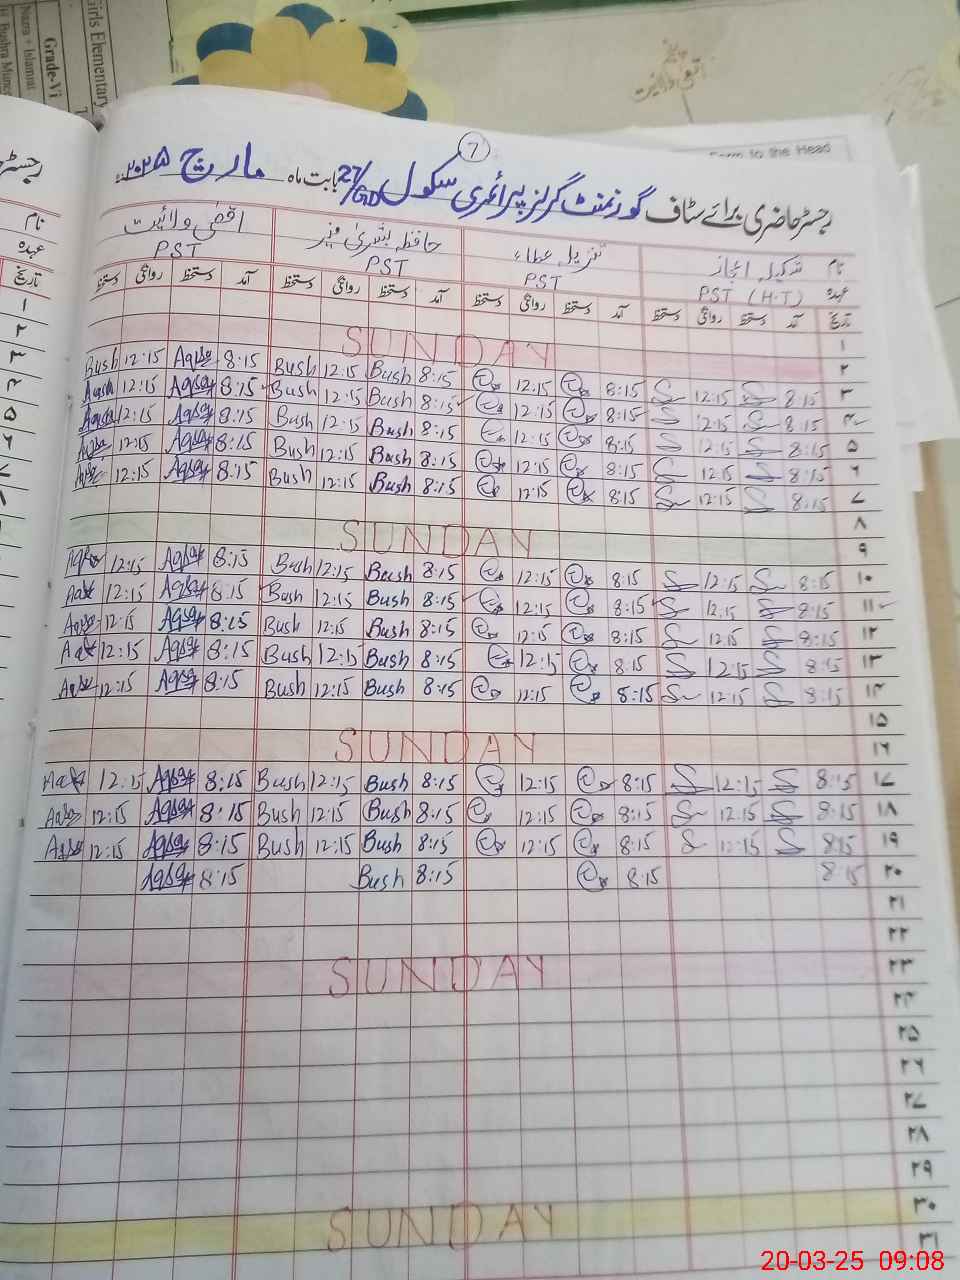 Girls Elementary
Grade-Vi
Nazra + Islamiat
Bushra Mune
Form to the Head
7
رجسٹر حاضری برائے سٹاف گورنمنٹ گرلز پرائمری سکول 27/GD بابت ماہ مارچ ۲۰۲۵
نام شکیلہ اعجاز تنزیلہ عطاء حافظہ بشریٰ منیر اقصٰی ولائیت
عہدہ PST (H.T) PST PST PST
تاریخ آمد دستخط روانگی دستخط آمد دستخط روانگی دستخط آمد دستخط روانگی دستخط آمد دستخط روانگی دستخط
۱
SUNDAY ۲
Bush 12:15 Aqsa 8:15 Bush 12:15 Bush 8:15 12:15 8:15 12:15 8:15 ۳
Aqsa 12:15 Aqsa 8:15 Bush 12:15 Bush 8:15 12:15 8:15 12:15 8:15 ۴
Aqsa 12:15 Aqsa 8:15 Bush 12:15 Bush 8:15 12:15 8:15 12:15 8:15 ۵
Aqsa 12:15 Aqsa 8:15 Bush 12:15 Bush 8:15 12:15 8:15 12:15 8:15 ۶
Aqsa 12:15 Aqsa 8:15 Bush 12:15 Bush 8:15 12:15 8:15 12:15 8:15 ۷
۸
SUNDAY ۹
Aqsa 12:15 Aqsa 8:15 Bush 12:15 Bush 8:15 12:15 8:15 12:15 8:15 ۱۰
Aqsa 12:15 Aqsa 8:15 Bush 12:15 Bush 8:15 12:15 8:15 12:15 8:15 ۱۱
Aqsa 12:15 Aqsa 8:15 Bush 12:15 Bush 8:15 12:15 8:15 12:15 8:15 ۱۲
Aqsa 12:15 Aqsa 8:15 Bush 12:15 Bush 8:15 12:15 8:15 12:15 8:15 ۱۳
Aqsa 12:15 Aqsa 8:15 Bush 12:15 Bush 8:15 12:15 8:15 12:15 8:15 ۱۴
۱۵
SUNDAY ۱۶
Aqsa 12:15 Aqsa 8:15 Bush 12:15 Bush 8:15 12:15 8:15 12:15 8:15 ۱۷
Aqsa 12:15 Aqsa 8:15 Bush 12:15 Bush 8:15 12:15 8:15 12:15 8:15 ۱۸
Aqsa 12:15 Aqsa 8:15 Bush 12:15 Bush 8:15 12:15 8:15 12:15 8:15 ۱۹
Aqsa 8:15 Bush 8:15 8:15 8:15 ۲۰
۲۱
۲۲
SUNDAY ۲۳
۲۴
۲۵
۲۶
۲۷
۲۸
۲۹
SUNDAY ۳۰
۳۱
رجسٹر
نام
عہدہ
تاریخ
۱
۲
۳
۴
۵
۶
۷
۸
20-03-25 09:08